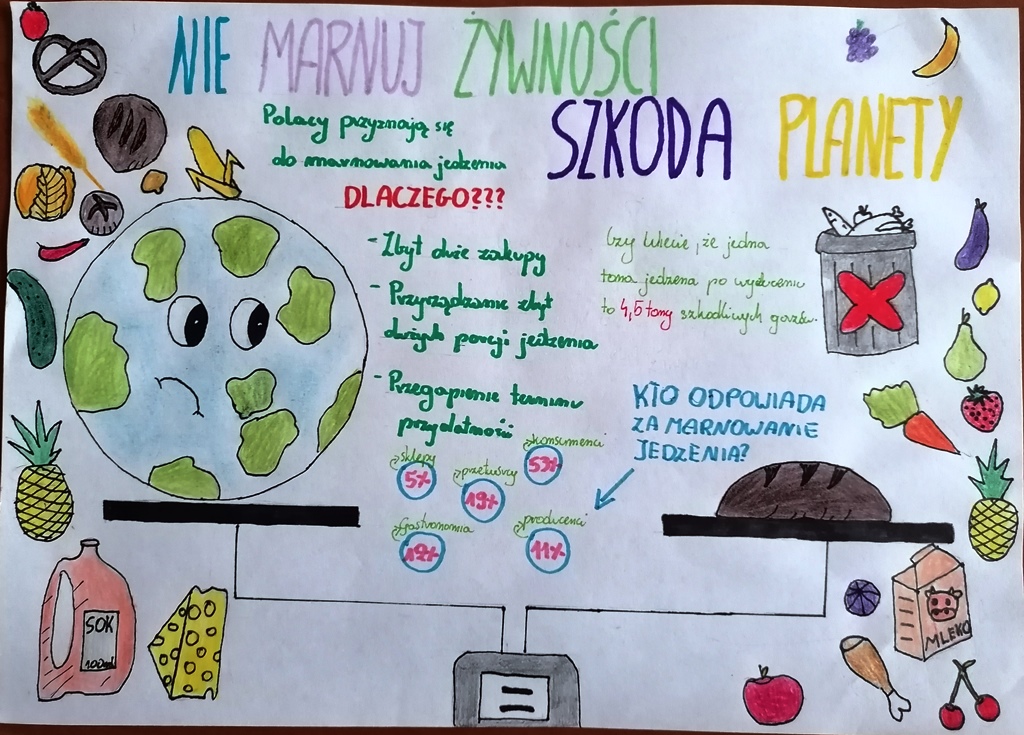 NIE MARNUJ ŻYWNOŚCI
SZKODA PLANETY
Polacy przyznają się
do marnowania jedzenia
DLACZEGO???
- Zbyt duże zakupy
- Przyrządzanie zbyt
dużych porcji jedzenia
- Przegapienie terminu
przydatności
Czy wiecie, że jedna
tona jedzenia po wyrzuceniu
to 4,5 tony szkodliwych gazów.
KTO ODPOWIADA
ZA MARNOWANIE
JEDZENIA?
sklepy
5%
przetwórcy
19%
konsumenci
53%
gastronomia
12%
producenci
11%
SOK
100ml
MLEKO